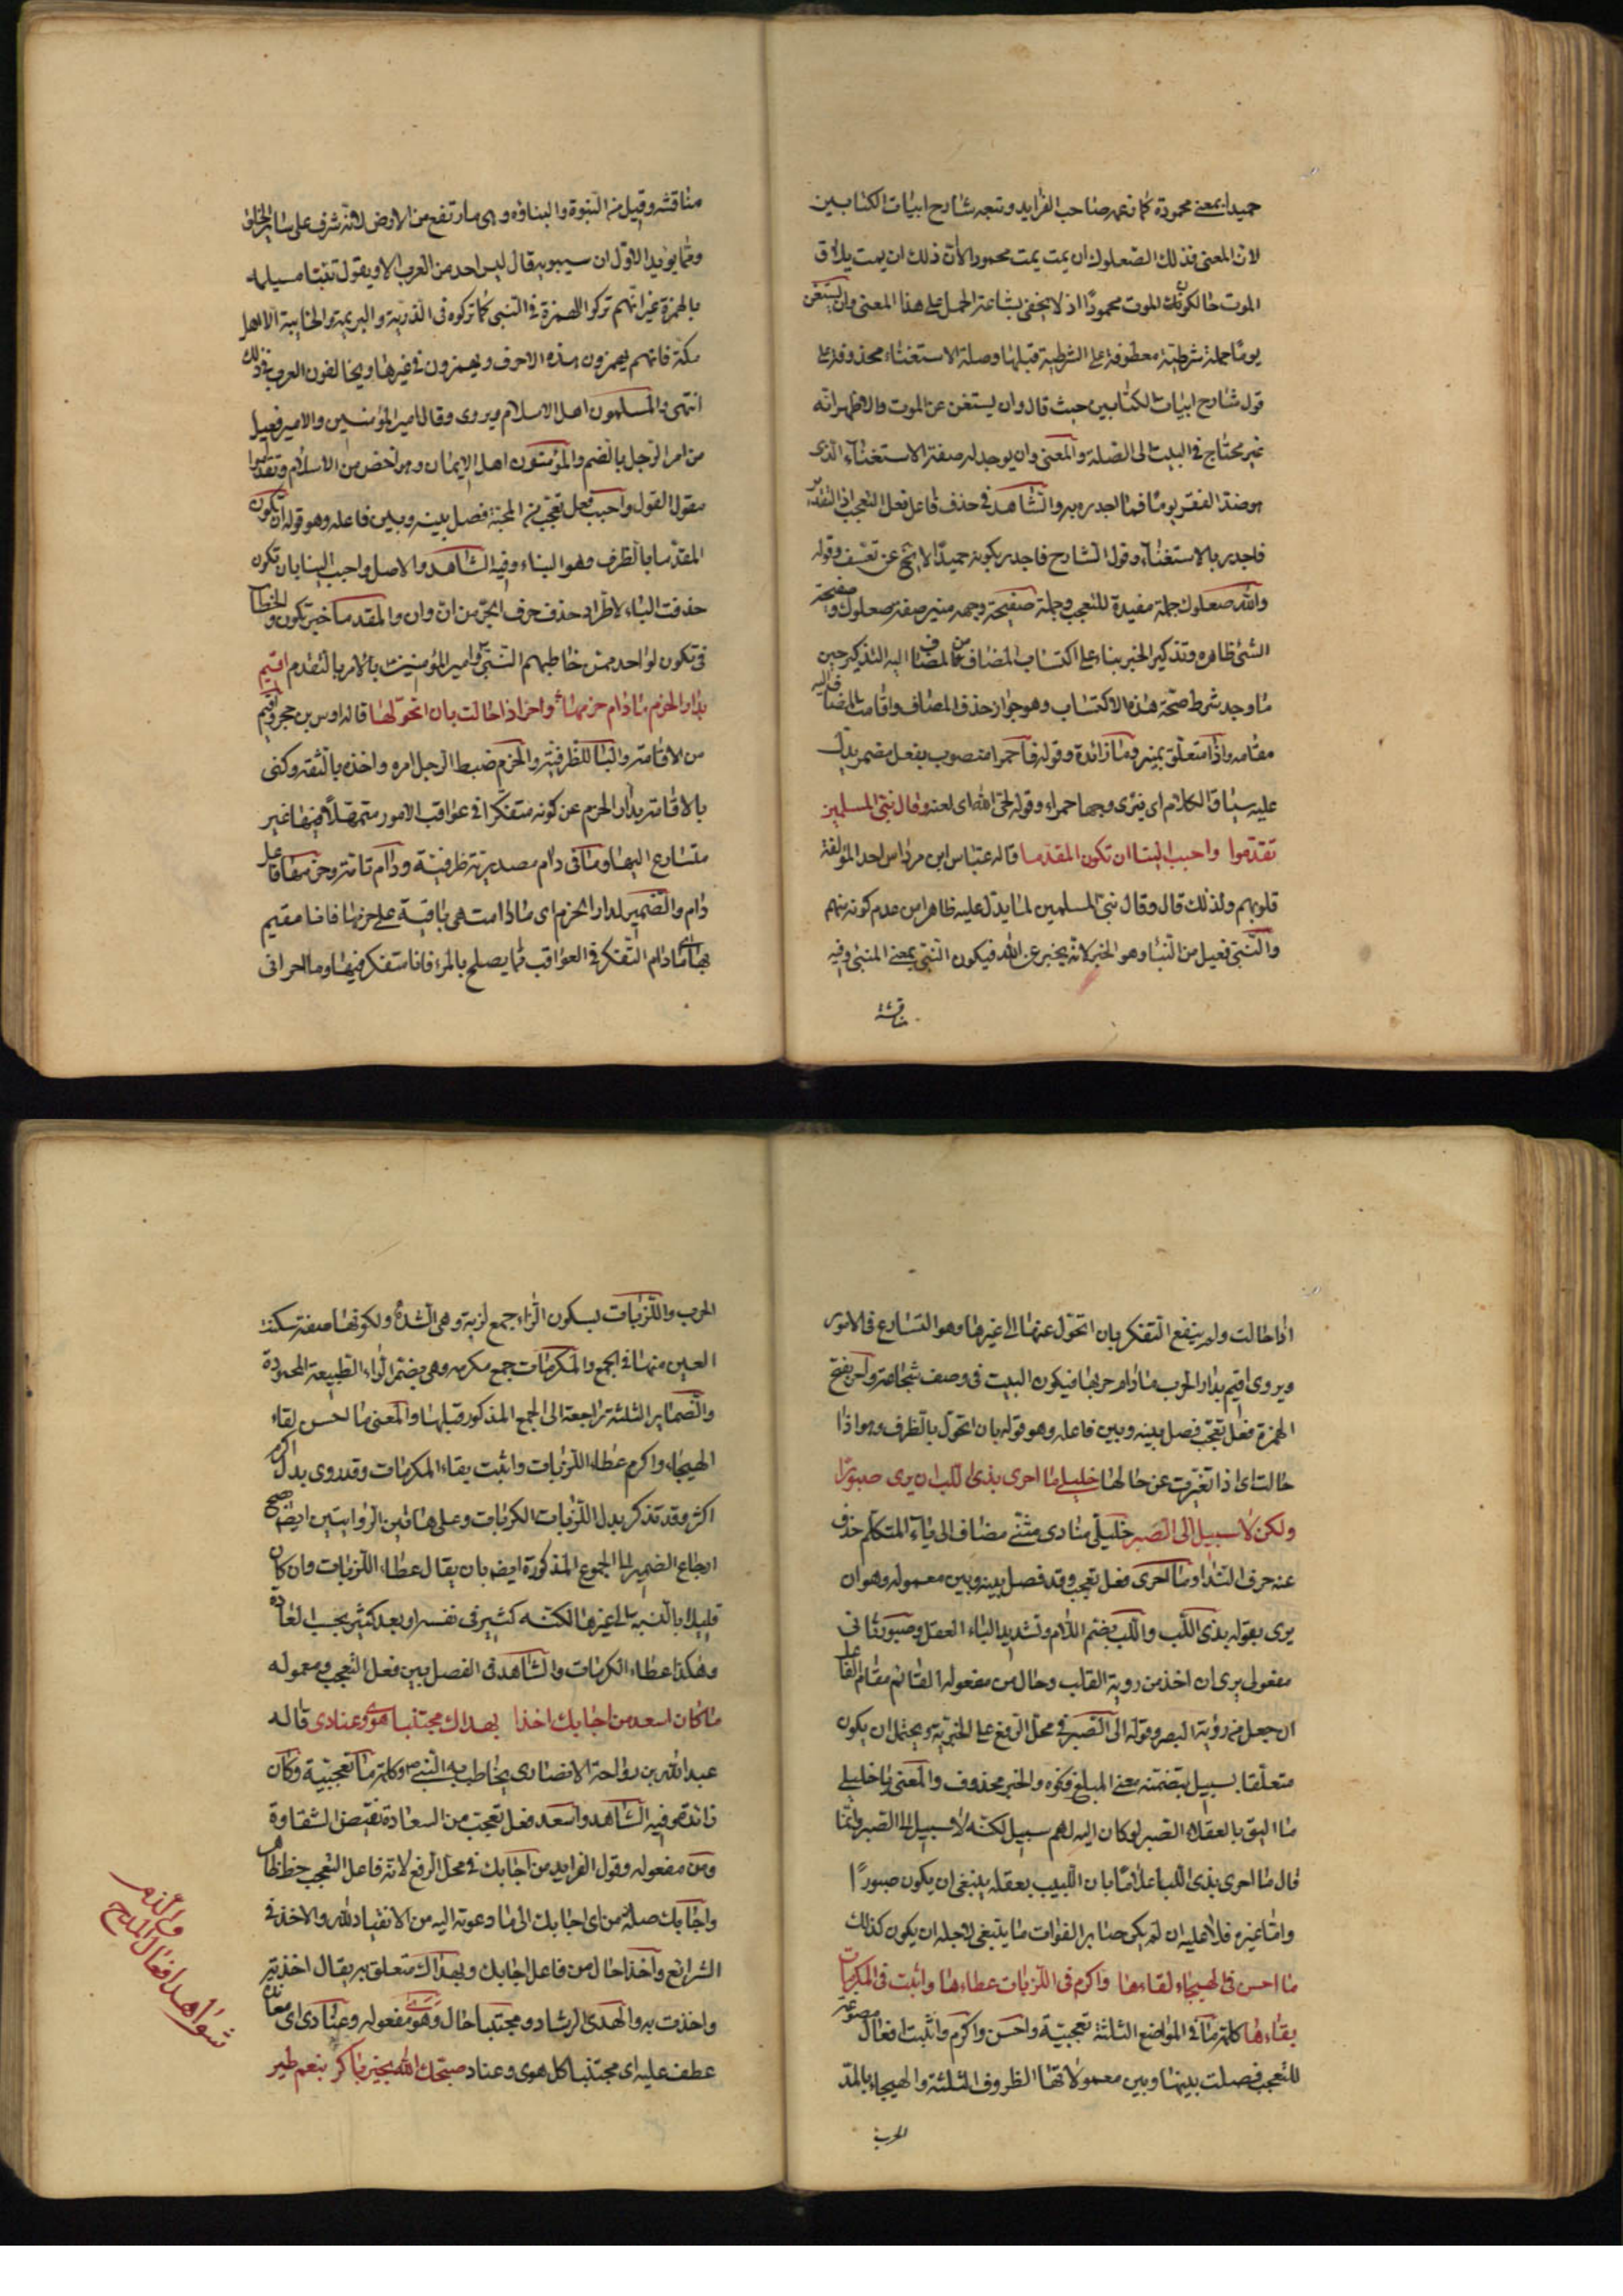 حميدا بمعنى محمودة كما زعمه صاحب الفرايد وتبعه شارح ابيات الكتابين
لان المعنى فذلك الصعلوك ان يمت يمت محمودا لان ذلك ان يمت يلاق
الموت حالكونك الموت محمودا اذ لا يخفى بشاعة الحمل على هذا المعنى وان يستغن
يوما جملة شرطية معطوفة على الشرطية قبلها وصلة الاستغناء محذوفة على
قول شارح ابيات الكتابين حيث قال وان يستغن عن الموت والاظهر انه
غير محتاج في البيت الى الصلة والمعنى وان يوجد له صفة الاستغناء الذى
هو ضد الفقر يوما فما اجدره به والشاهد في حذف فاعل فعل التعجب اذ التقدير
فاجدر بالاستغناء وقول الشارح فاجدر بكونه حميدا لا يخ عن تعسف وقوله
والله صعلوك جملة مفيدة للتعجب وجملة صفيحة وجهه منير صفة صعلوك وصفيحة
الشئ ظاهره وتذكير الخبر بناء على اكتساب المضاف من المضاف اليه التذكير حين
ما وجد شرط صحة هذه الاكتساب وهو جواز حذف المضاف واقامة المضاف اليه
مقامه واذا متعلق بمنير وما زائدة وقوله فاحمرا منصوب بفعل مضمر يدل
عليه سياق الكلام اى فيرى وجها احمراء وقوله لحى الله اى لعنه وقال نبى المسلمين
تقدموا واحبب الينا ان تكون المقدما قاله عباس ابن مرداس احد المؤلفة
قلوبهم ولذلك قال وقال نبى المسلمين لما يدل عليه ظاهرا من عدم كونه منهم
والنبى فعيل من النباء وهو الخبر لانه يخبر عن الله فيكون النبى بمعنى المنبئ وفيه
مناقشة
مناقشه وقيل من النبوة والنباوة وهى ما ارتفع من الارض لانه شرف على سائر الخلق
ومما يؤيد الاول ان سيبويه قال ليس احد من العرب الا ويقول تنبا مسيلمه
بالهمزة غير انهم تركوا الهمزة في النبى كما تركوه فى الذرية والبرية والخابية الا اهل
مكة فانهم يهمزون هذه الاحرف ويهمزون في غيرها ويخالفون العرب في ذلك
انتهى والمسلمون اهل الاسلام ويروى وقال امير المؤمنين والامير فعيل
من امر الرجل بالضم والمؤمنون اهل الايمان وهو اخص من الاسلام وتقدموا
مقول القول واحبب فعل تعجب من المحبة فصل بينه وبين فاعله وهو قوله ان تكون
المقدما بالظرف وهو الينا وفيه الشاهد والاصل واحبب الينا بان تكون
حذفت الباء لاطراد حذف حرف الجر من ان وان والمقدما خبر تكون والخطاب
فى تكون لواحد ممن خاطبهم النبى وامير المؤمنين بالامر بالتقدم اقيم
بدار الحزم ما دام حزمها واحر اذا حالت بان اتحولا لها قاله اوس بن حجر واقيم
من الاقامة والبا للظرفية والحزم ضبط الرجل امره واخذه بالثقة وكنى
بالاقامة بدار الحزم عن كونه متفكرا في عواقب الامور متمهلا فيها غير
متسارع اليها وما فى دام مصدرية ظرفية ودام تامة وحزمها فاعل
دام والضمير لدار الحزم اى ما دامت هى باقية على حزمها فانا مقيم
بها اى ما دام التفكر في العواقب مما يصلح بالمرء فانا متفكر فيها وما احرانى
اذا حالت ولم ينفع التفكر بان اتحول عنها الى غيرها وهو التسارع في الامور
ويروى اقيم بدار الحرب ما دام حربها فيكون البيت في وصف شجاعته واحر بفتح
الهمزة فعل تعجب فصل بينه وبين فاعله وهو قوله بان اتحول بالظرف وهو اذا
حالت اى اذا تغيرت عن حالها خليلى ما احرى بذى اللب ان يرى صبورا
ولكن لا سبيل الى الصبر خليلى منادى مثنى مضاف الى ياء المتكلم حذف
عنه حرف النداء وما احرى فعل تعجب وقد فصل بينه وبين معموله وهو ان
يرى بقوله بذى اللب واللب بضم اللام وتشديد الباء العقل وصبورا ثانى
مفعولى يرى ان اخذ من روية القلب وحال من مفعوله القائم مقام الفاعل
ان جعل من رؤية البصر وقوله الى الصبر في محل الرفع على الخبرية ويحتمل ان يكون
متعلقا بسبيل بتضمنه معنى المبلغ ونحوه والخبر محذوف والمعنى يا خليلى
ما اليق بالعقلاء الصبر لو كان اليه لهم سبيل لكنه لا سبيل الى الصبر وانما
قال ما احرى بذى اللب اعلاما بان اللبيب بعقله ينبغى ان يكون صبورا
واما غيره فلا عليه ان لم يكن صابرا لفوات ما ينبغى لاجله ان يكون كذلك
ما احسن في الهيجاء لقاءها واكرم فى اللزبات عطاءها واثبت فى المكرمات
بقاءها كلمة ما في المواضع الثلثة تعجبية واحسن واكرم واثبت افعال مصوغة
للتعجب فصلت بينها وبين معمولاتها الظروف الثلثة والهيجاء بالمد
الحرب
الحرب واللزبات بسكون الزاء جمع لزبة وهى الشدة ولكونها صفة سكنت
العين منها في الجمع والمكرمات جمع مكرمه وهى بضم الراء الطبيعة المحمودة
والضماير الثلثة راجعة الى الجمع المذكور قبلها والمعنى ما احسن لقاء
الهيجاء واكرم عطاء اللزبات واثبت بقاء المكرمات وقد روى بدل اكرم
اكثر وقد تذكر بدل اللزبات الكربات وعلى هاتين الروايتين ايضا صح
ارجاع الضمير الى الجموع المذكورة ايضه بان يقال عطاء اللزبات وان كان
قليلا بالنسبه الى غيرها لكنه كثير فى نفسه او يعد كثيرا بحسب العادة
وهكذا عطاء الكربات والشاهد فى الفصل بين فعل التعجب ومعموله
ما كان اسعد من اجابك اخذا بهداك مجتنبا هوى وعنادى قاله
عبد الله بن رواحة الانصارى يخاطب به النبى ص وكلمة ما تعجبية وكان
زائدة وفيه الشاهد واسعد فعل تعجب من السعادة نقيض الشقاوة
ومن مفعوله وقول الفرايد من اجابك في محل الرفع لانه فاعل التعجب خطا ظاهر
واجابك صلة من اى اجابك الى ما دعوته اليه من الانقياد لله والاخذ في
الشرائع واخذا حال من فاعل اجابك وبهداك متعلق به يقال اخذته
واخذت به والهدى الرشاد ومجتنبا حال وهوى مفعوله وعنادى اى معاندة
عطف عليه اى مجتنبا كل هوى وعناد صبحك الله بخير باكر بنعم طير
شواهد افعال المدح
والذم